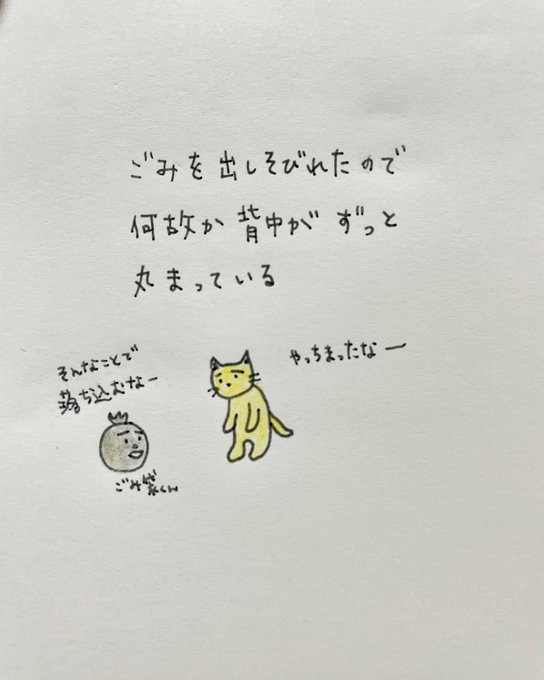 ごみを出しそびれたので
何故か背中がずっと
丸まっている
そんなことで
落ち込むなー
やっちまったなー
ごみ袋くん